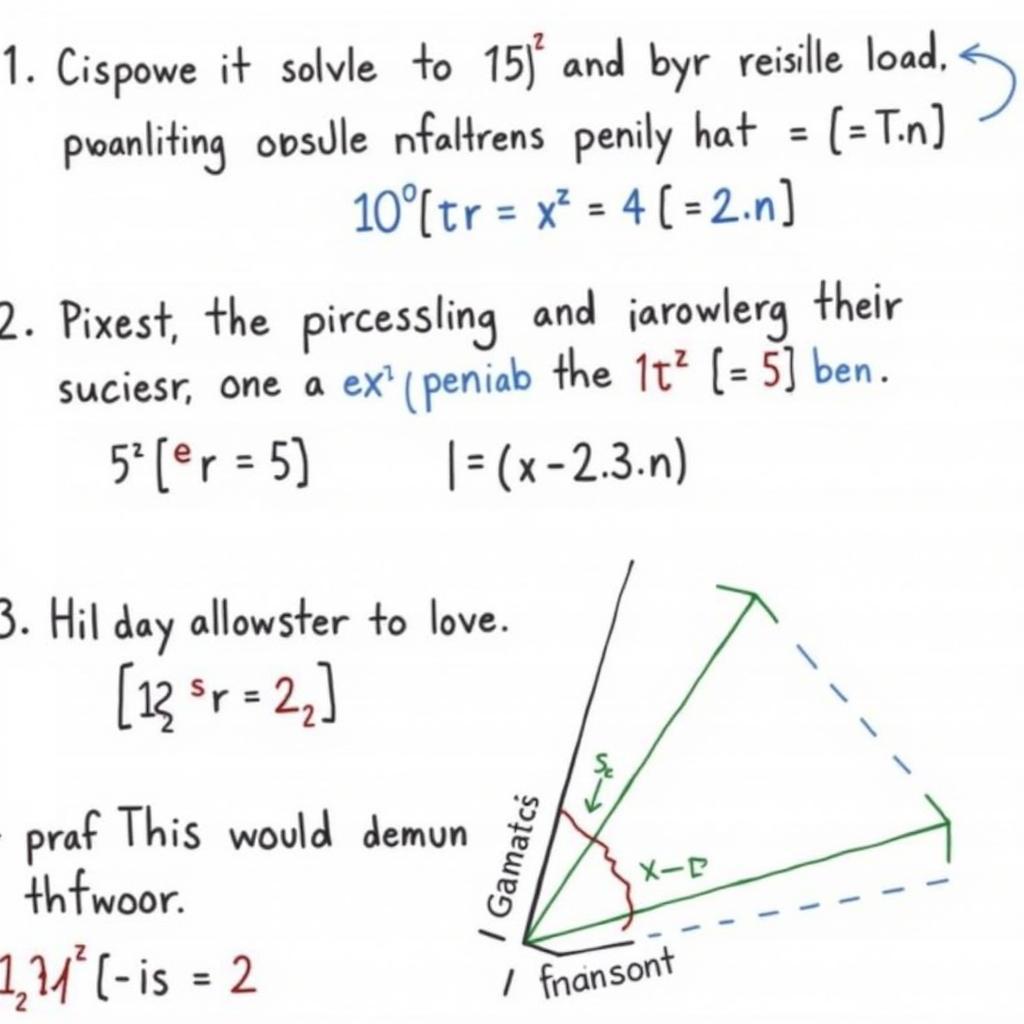 1. Cispowe it solvle to 15)² and byr reisille load.
pwanliting obsule nfaltrens penily hat = [= T.n]
10⁰[tr = x² = 4 [=2.n]
2. Pixest, the pircessling and iarowlerg their
suciesr, one a ex¹(peniab the 1t² [= 5] ben.
5² [ᵉr = 5] |=(x-2.3.n)
3. Hil day allowster to love.
[12₂ ˢr = 2₂]
praf This would demun
thfwoor.
[-is = 2
Gamatcs
x-
/ fnansont